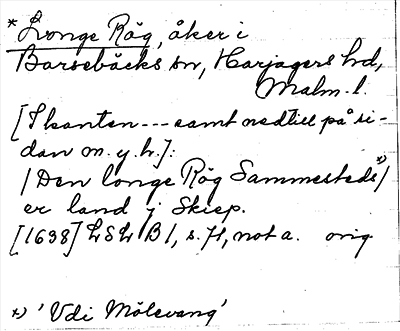 *Longe Rög, åker i
Barsebäcks sn, Harjagers hd,
Malm. l.
[I kanten --- samt nedtill på si-
dan m. y. h.]:
/Den longe Rög Sammesteds *)/
er land j Skiep.
[1638] LSL B 1, s. 71, not a. orig
*) 'Udi Mölevang'